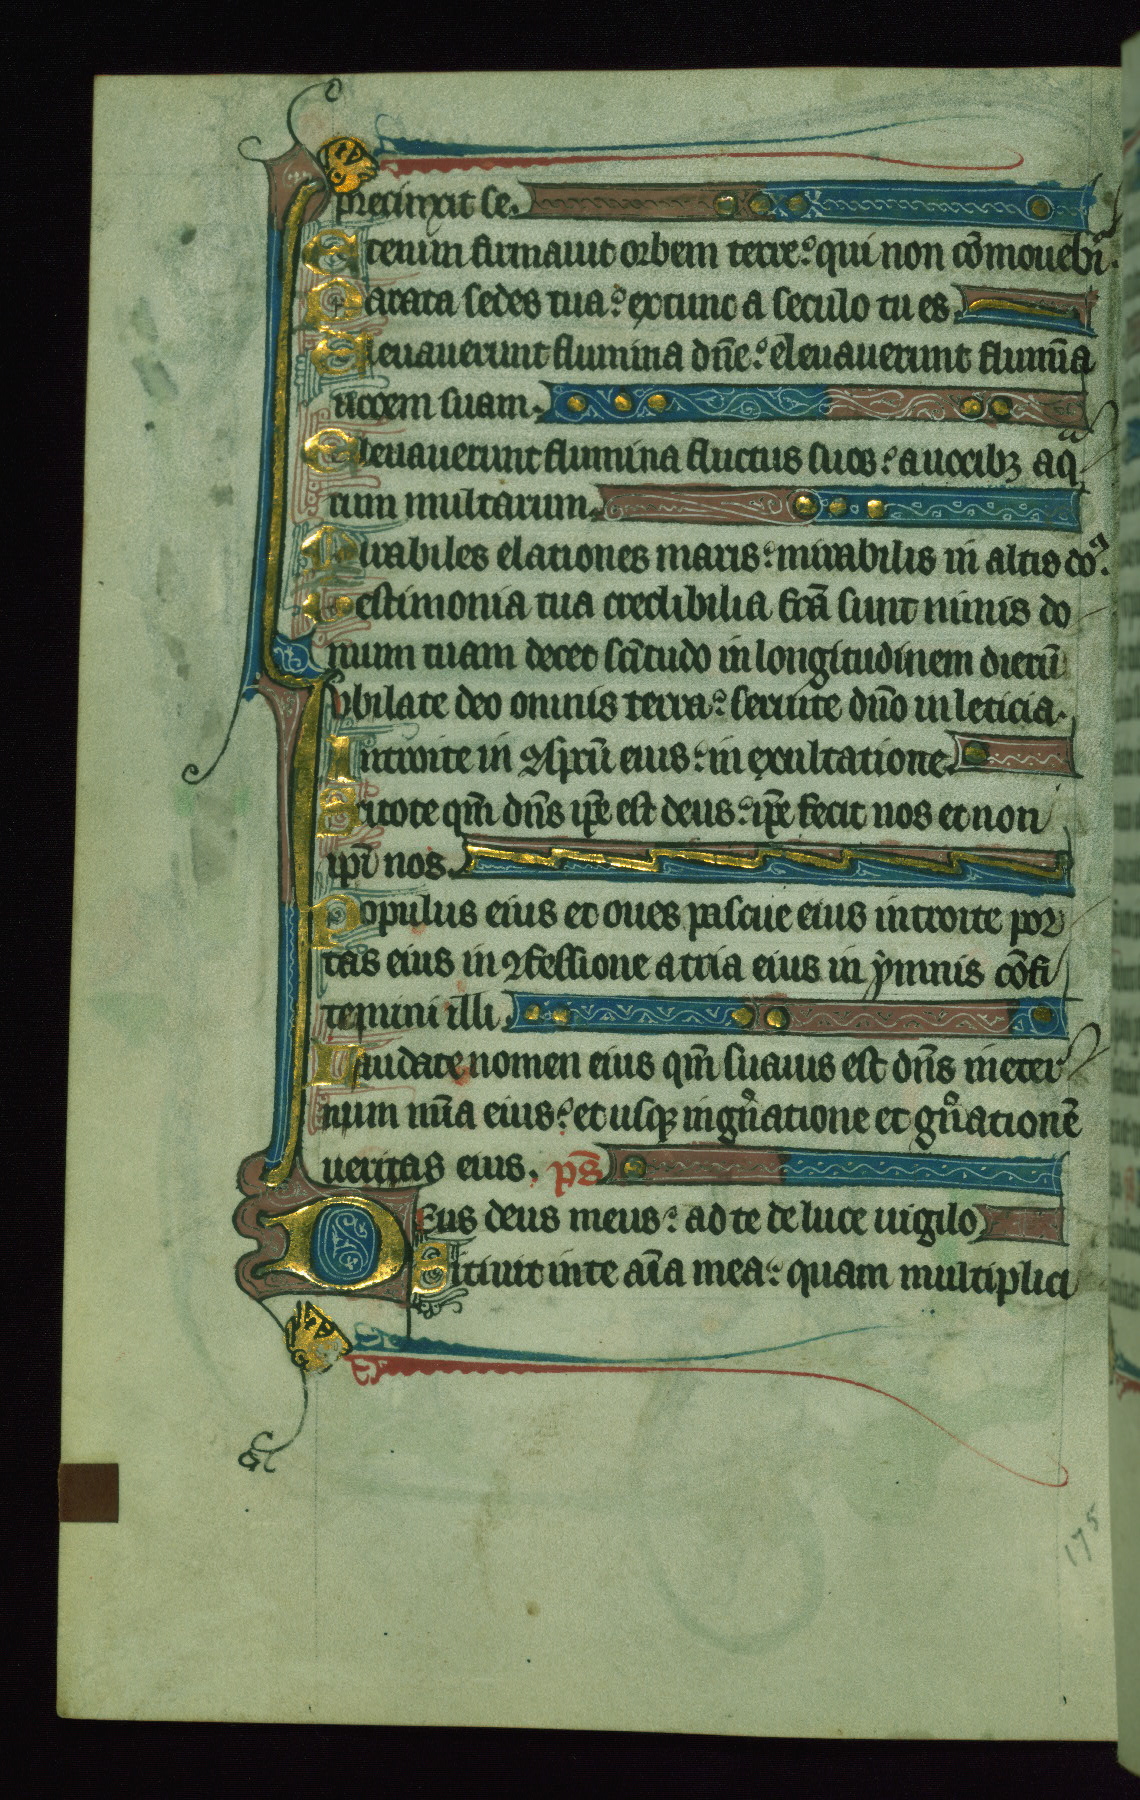 precinxit se.
Etenim firmauit orbem terre: qui non cōmouebiᵗ.
Parata sedes tua: extunc a seculo tu es.
Eleuauerunt flumina dn̄e: eleuauerunt flumīa
uocem suam.
Eleuauerunt flumina fluctus suos: a uocibꝫ aqᵃ
rum multarum.
Mirabiles elationes maris: mirabilis in altis doꝰ.
Testimonia tua credibilia fcā sunt nimis do
mum tuam decet sc̄itudo in longitudinem dierū
Iubilate deo omnis terra: seruite dn̄o in leticia.
Introite in ꝯspcū eius: in exultatione.
Scitote qm̄ dn̄s ip̄e est deus: ip̄e fecit nos et non
ip̄i nos.
Populus eius et oues pascue eius introite por
tas eius in ꝯfessione atria eius in ẏmnis cōfi
temini illi.
Laudate nomen eius qm̄ suauis est dn̄s in eter
num mīa eius: et usqꝫ in gn̄atione et gn̄ationē
ueritas eius. ps̄
Deus deus meus: ad te de luce uigilo
Sitiuit in te aīa mea: quam multiplici
175